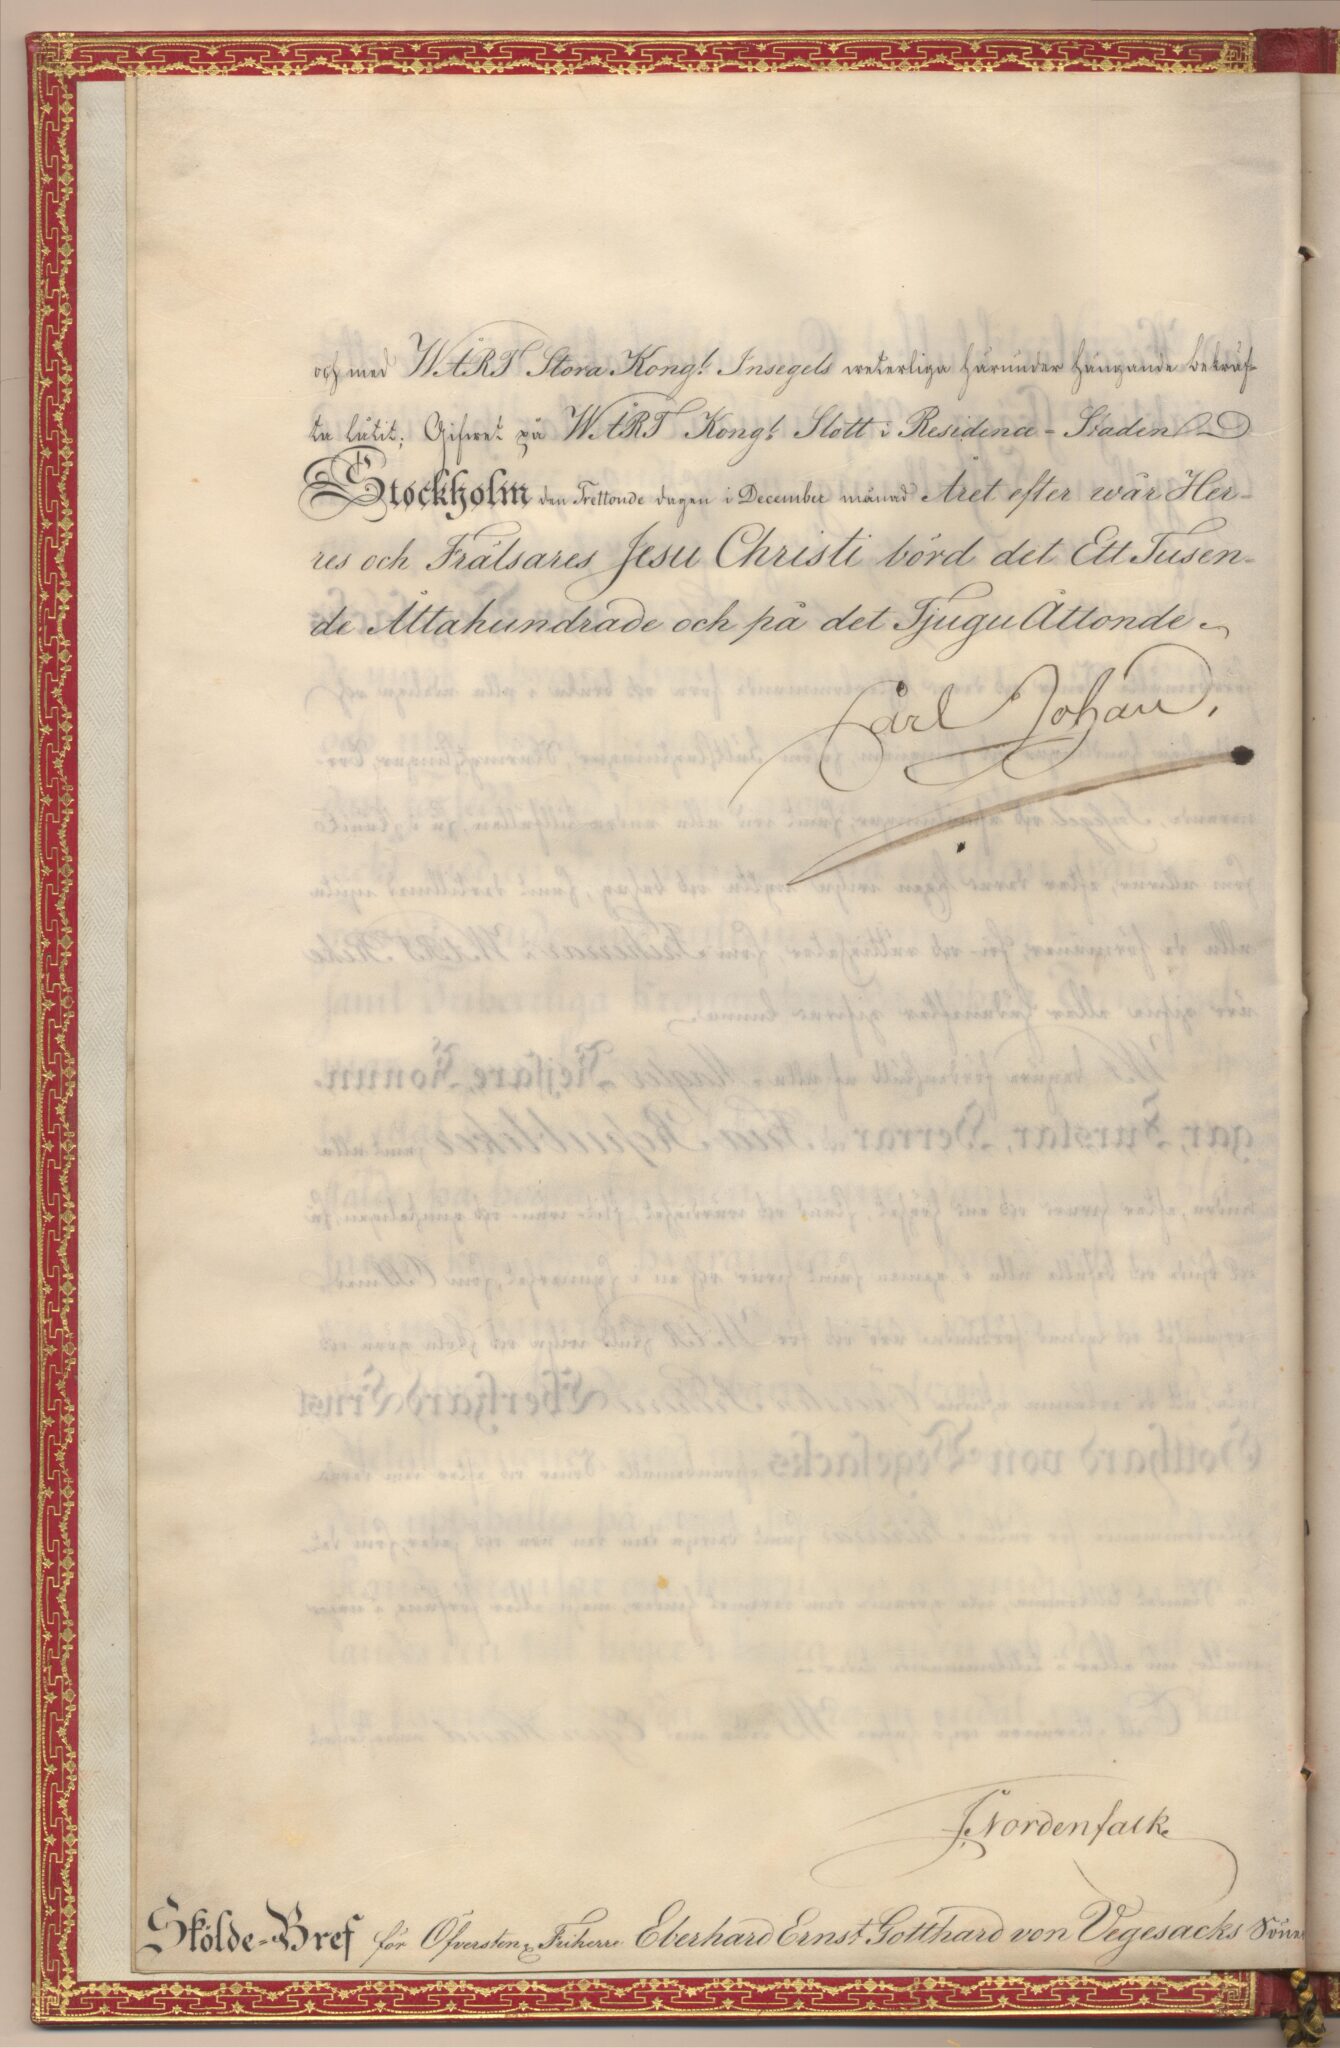 och med WÅRT Stora Kongl. Insegels weterliga härunder hängande bekräf-
ta låtit; Gifwet på WÅRT Kongl. Slott i Residence-Staden
Stockholm den Trettonde dagen i December månad Året efter wår Her-
res och Frälsares Jesu Christi börd det Ett Tusen-
de Åttahundrade och på det Tjugu Åttonde.
Carl Johan.
J. Nordenfalk
Skölde-Bref för Öfversten, Friherre Eberhard Ernst Gotthard von Vegesacks